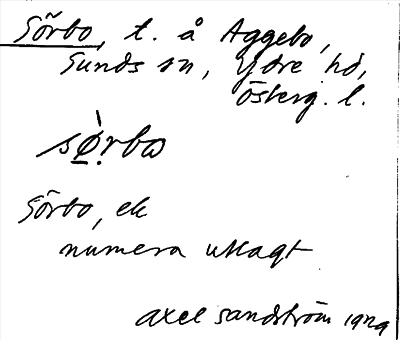 Sörbo, t. å Aggebo,
Sunds sn, Ydre hd,
Österg. l.
sø̱̀rbω
Sörbo, ek
numera utlagt
Axel Sandström 1929